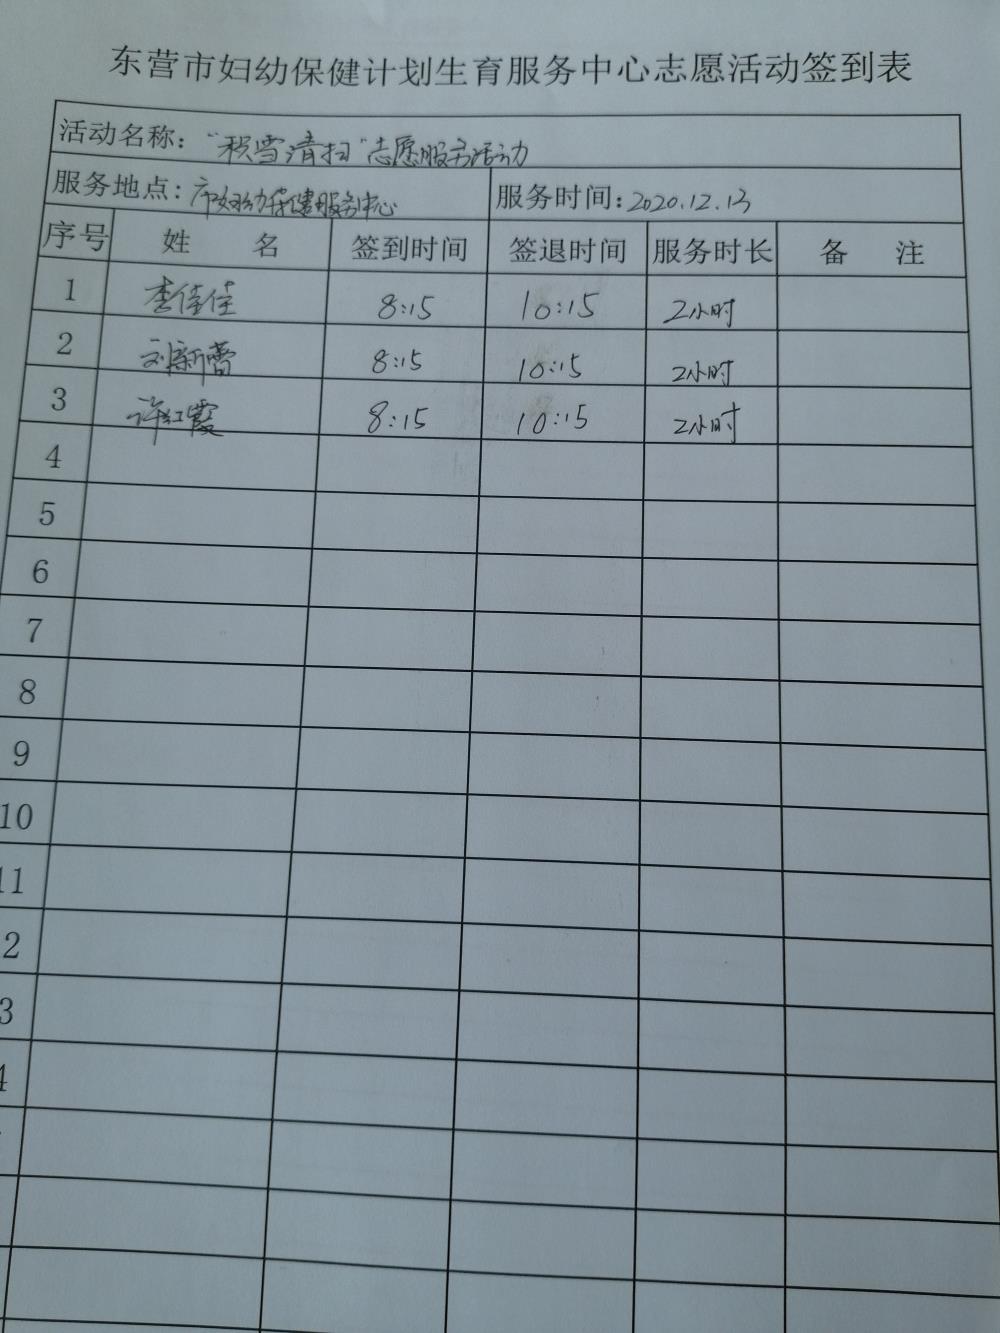 东营市妇幼保健计划生育服务中心志愿活动签到表
活动名称：“积雪清扫”志愿服务活动
服务地点：市妇幼保健服务中心 服务时间：2020.12.13
序号 姓 名 签到时间 签退时间 服务时长 备 注
1 李佳佳 8:15 10:15 2小时
2 刘新蕾 8:15 10:15 2小时
3 许红霞 8:15 10:15 2小时
4
5
6
7
8
9
10
11
2
3
4